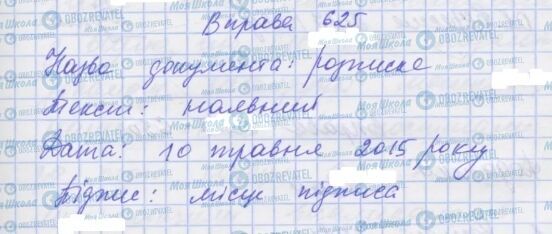 Вправа 625
Назва документа: розписка
Текст: наявний
Дата: 10 травня 2015 року
Підпис: місце підписа